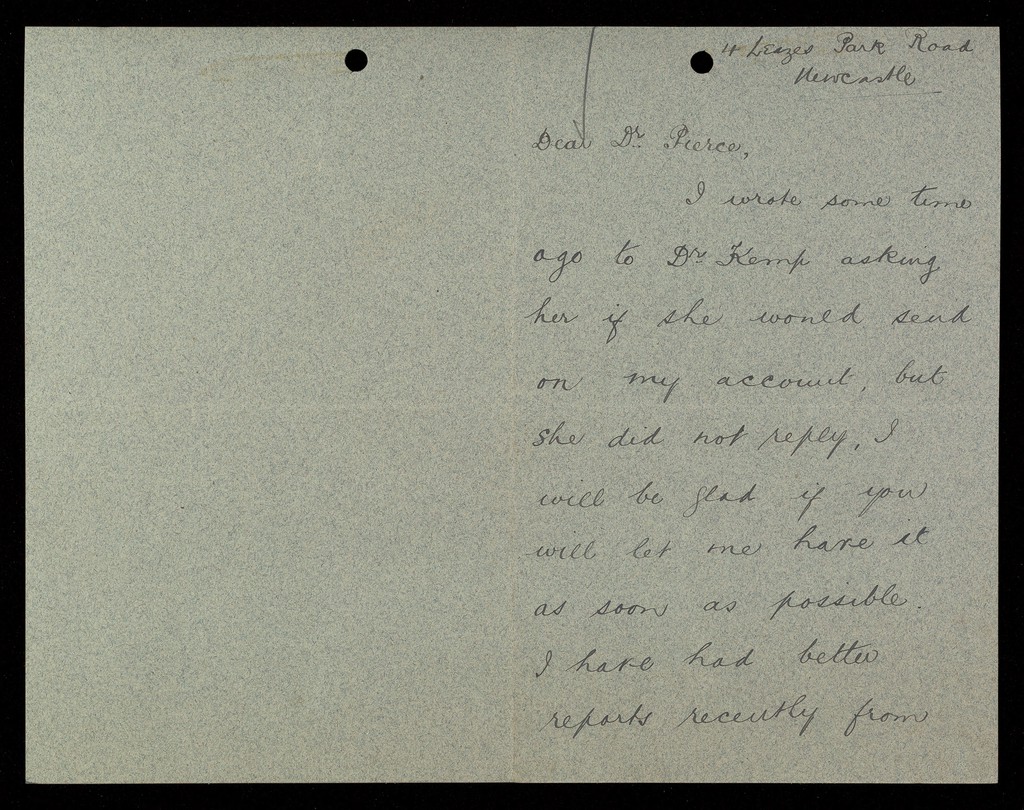 4 Leazes Park Road
Newcastle
Dear Dr. Pierce,
I wrote some time
ago to Dr Kemp asking
her if she would send
on my account, but
she did not reply, I
will be glad if you
will let me have it
as soon as possible.
I have had better
reports recently from